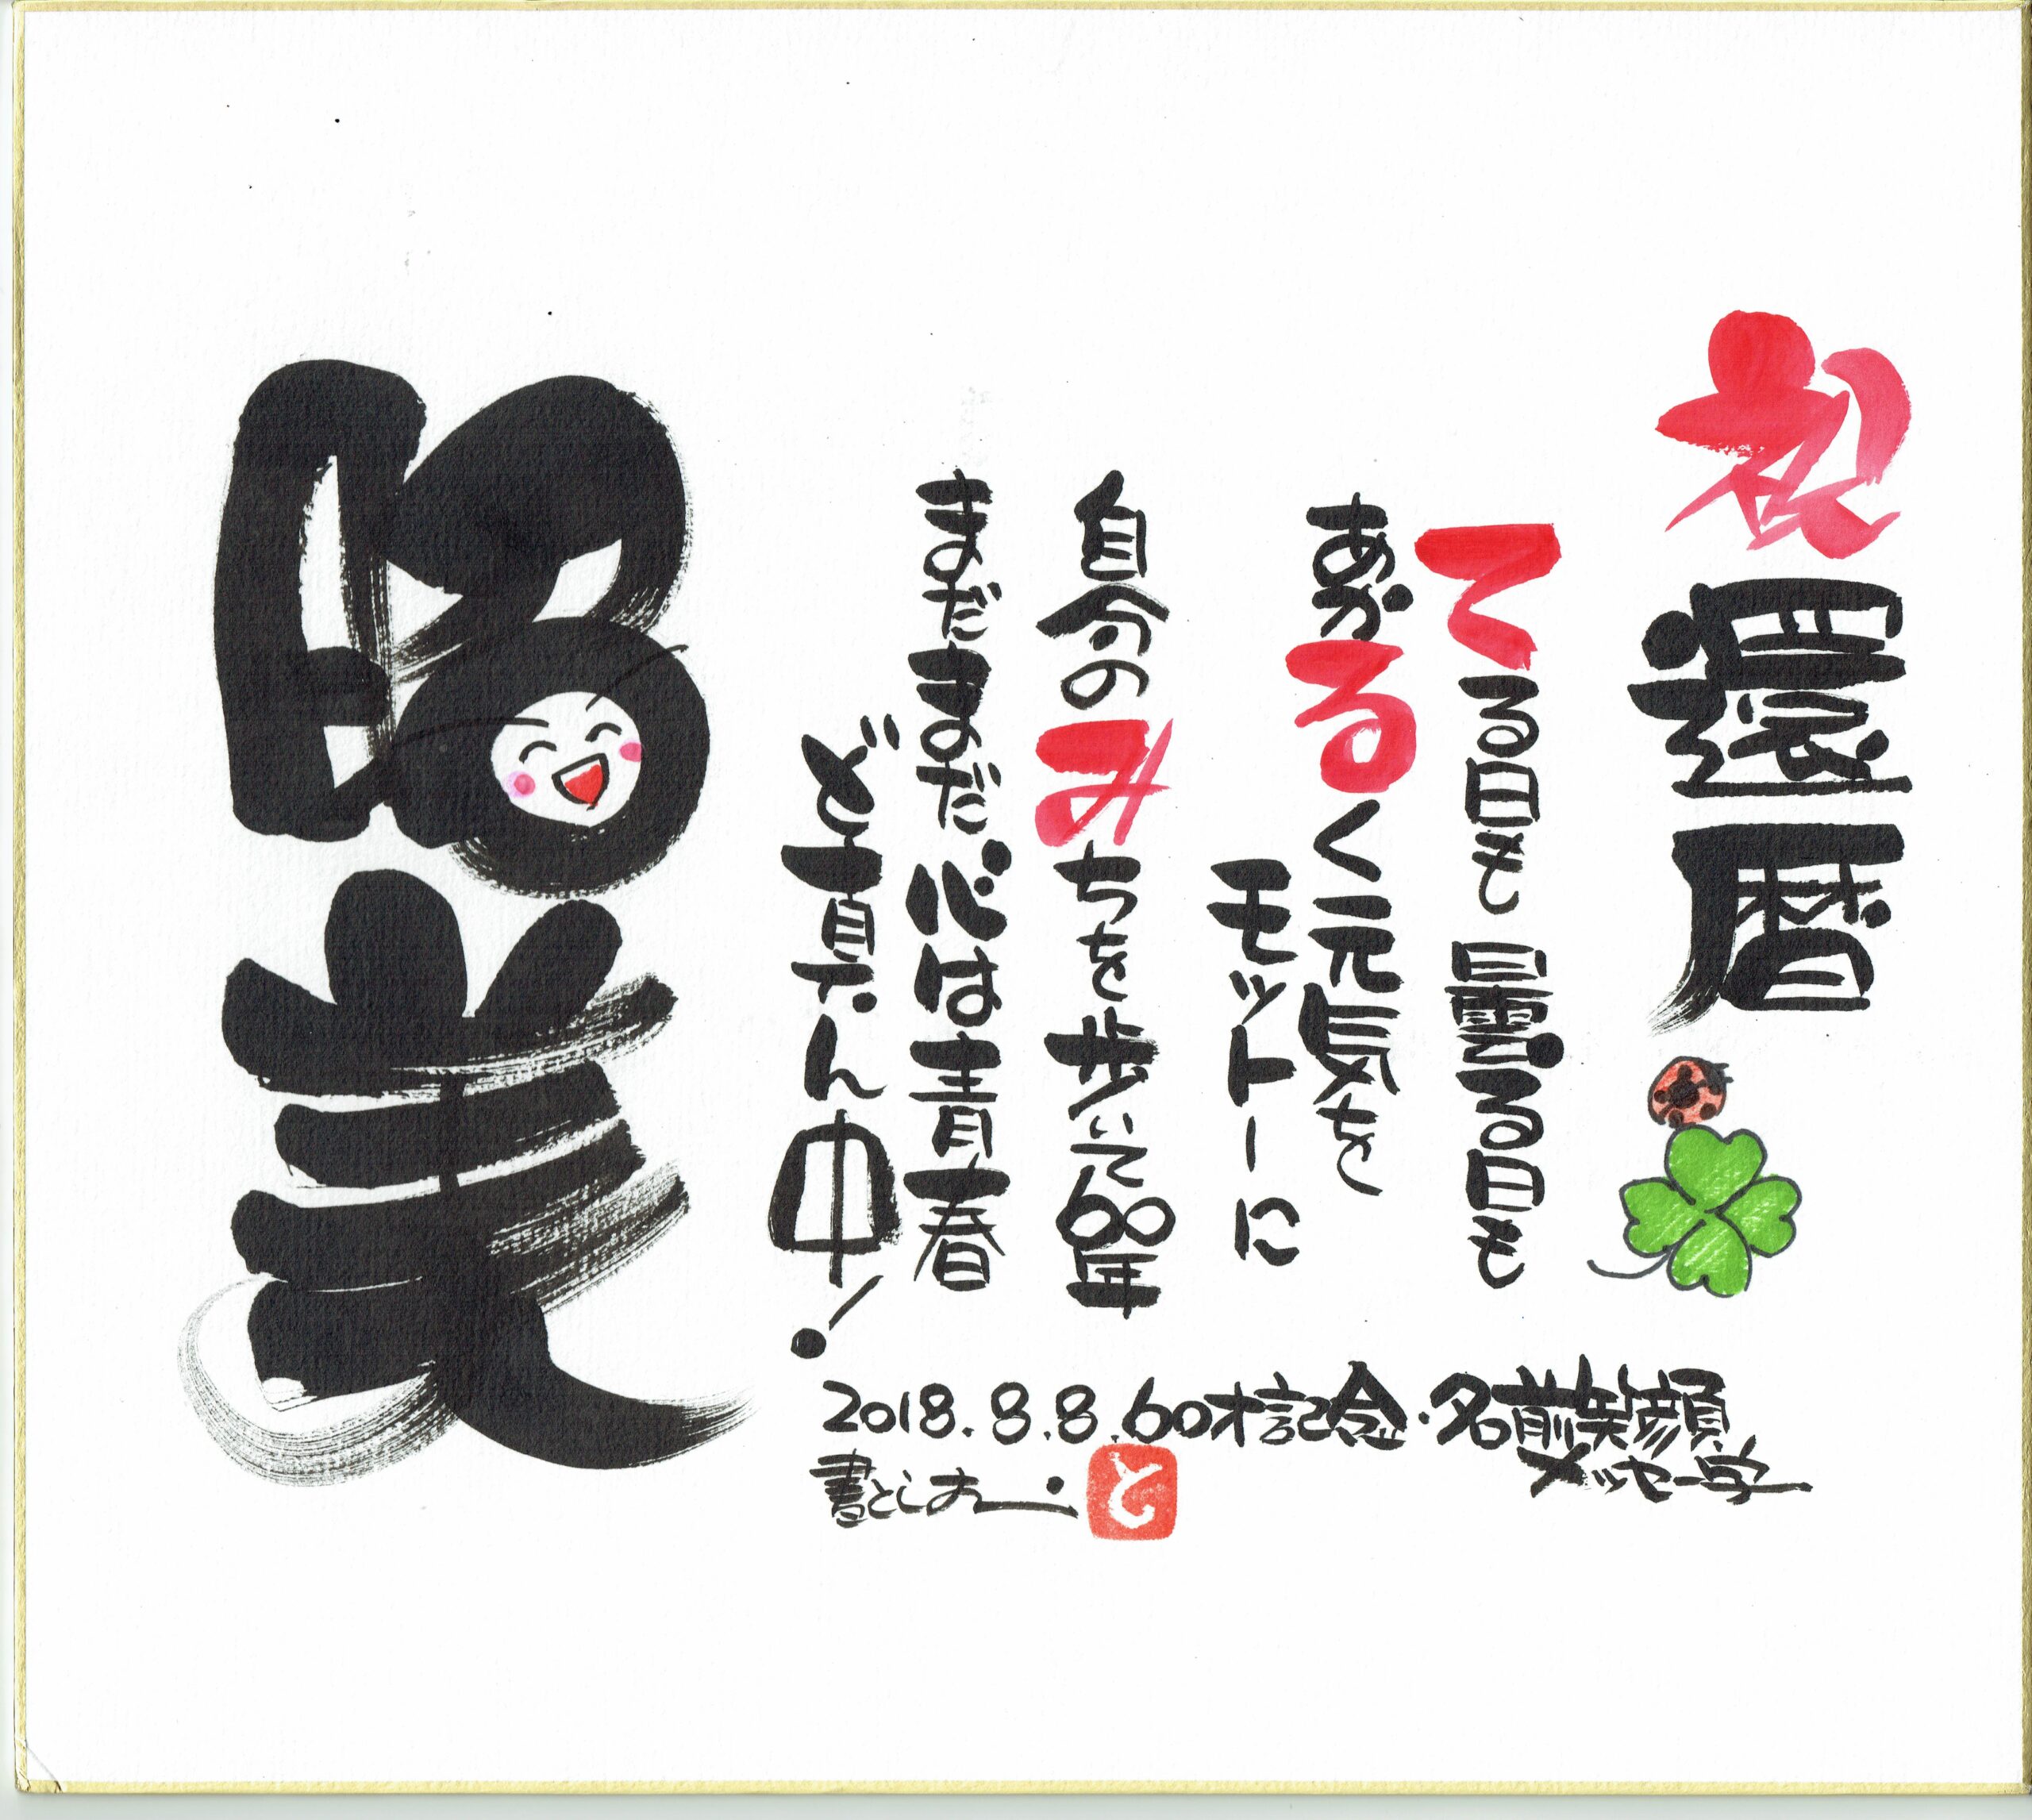 祝還暦
てる日も曇る日も
あかるく元気を
モットーに
自分のみちを歩いて60年
まだまだ心は青春
ど真ん中!
昭美
2018.8.8.60才記念・名前笑顔
メッセー字
書としお
と